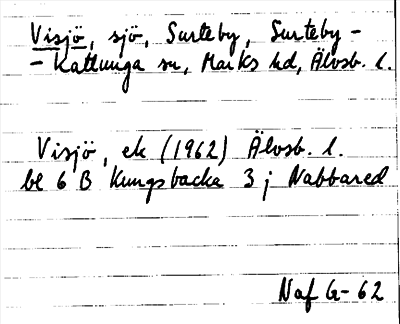 Visjö, sjö, Surteby, Surteby-
-Kattunga sn, Marks hd, Älvsb. l.
Visjö, ek (1962) Älvsb. l.
bl 6 B Kungsbacka 3 j Nabbared
Naf G-62